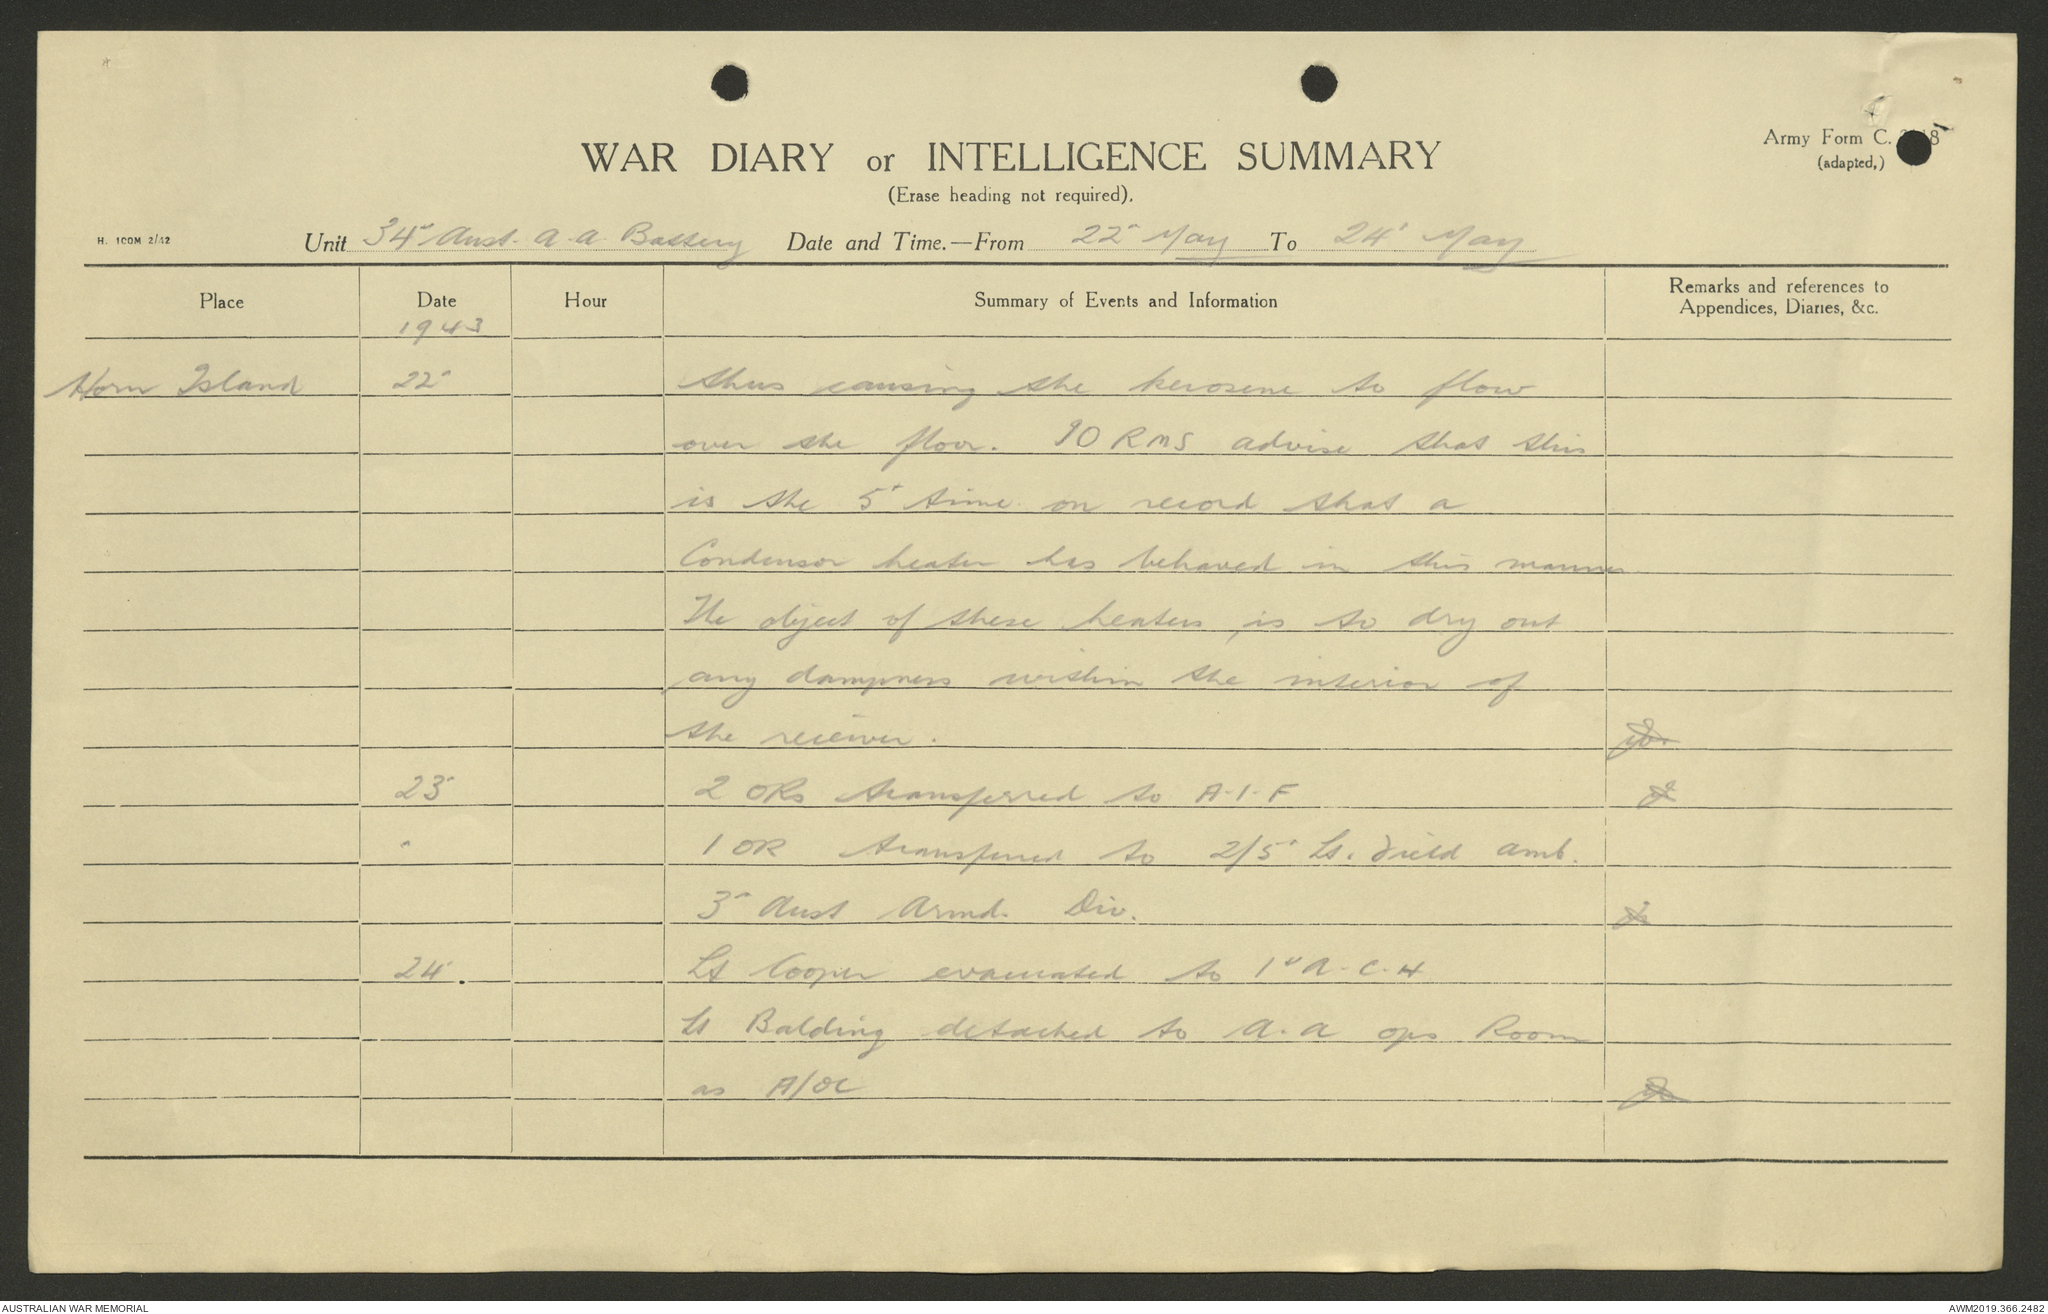 WAR DIARY or INTELLIGENCE SUMMARY
(Erase heading not required).
Army Form C. 8
(adapted,)
H. 100M 2/42
Unit 34" Aust. A.A. Battery Date and Time.—From 22" May To 24" May
Place Date Hour Summary of Events and Information Remarks and references to
Appendices, Diaries, &c.
1943
Horn Island 22" thus causing the kerosene to flow
over the floor. RMS advise that this
is the 5" time on record that a
Condensor heater has behaved in this manner
The object of these heaters, is to dry out
any dampness within the interior of
the receiver.
23" 2 ORs transferred to A.I.F
" 1 OR transferred to 2/5" Lt. Field Amb.
3" Aust Armd. Div.
24". Lt Cooper evacuated to 1" A.C.H
Lt Balding detached to A.A Ops Room
as A/OC
AUSTRALIAN WAR MEMORIAL
AWM2019.366.2482